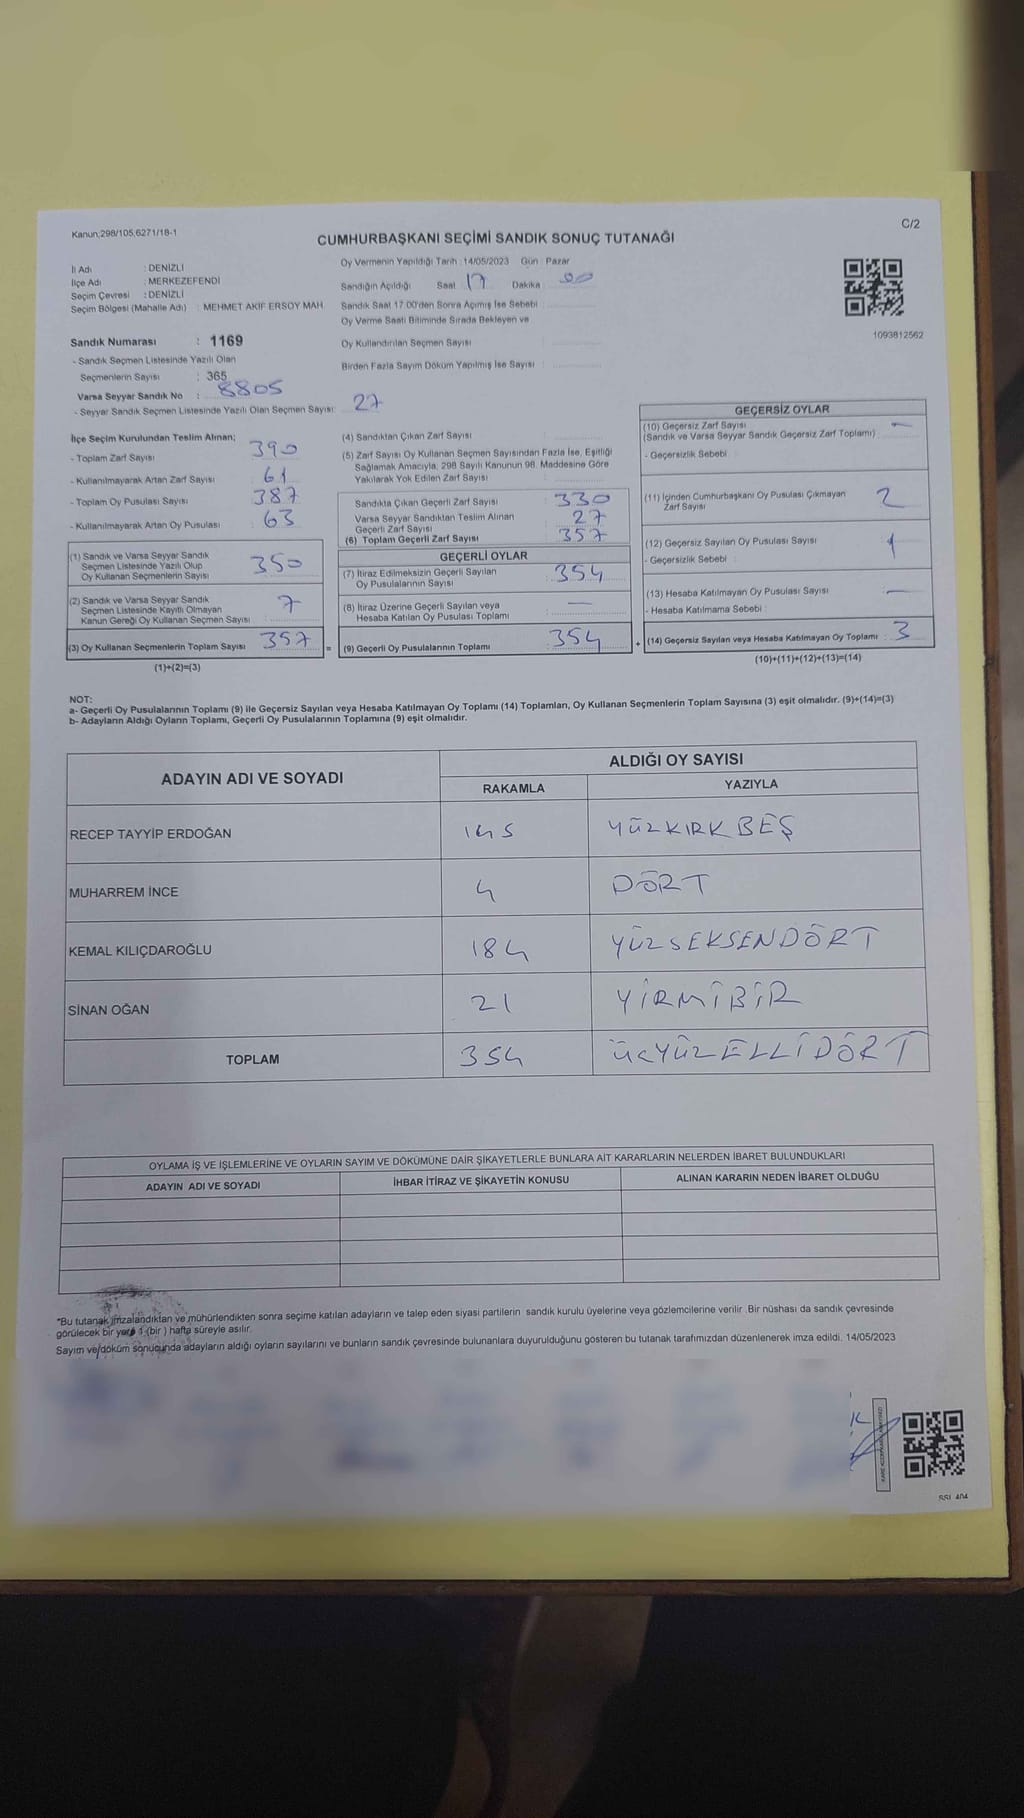 Kanun;298/105,6271/18-1
C/2
CUMHURBAŞKANI SEÇİMİ SANDIK SONUÇ TUTANAĞI
İl Adı : DENİZLİ
İlçe Adı : MERKEZEFENDİ
Seçim Çevresi : DENİZLİ
Seçim Bölgesi (Mahalle Adı) : MEHMET AKİF ERSOY MAH.
Oy Vermenin Yapıldığı Tarih : 14/05/2023 Gün : Pazar
Sandığın Açıldığı Saat : 17 Dakika : 00
Sandık Saat 17.00'den Sonra Açımış İse Sebebi :
Oy Verme Saati Bitiminde Sırada Bekleyen ve
Oy Kullandırılan Seçmen Sayısı :
Birden Fazla Sayım Döküm Yapılmış İse Sayısı :
1093812562
Sandık Numarası : 1169
- Sandık Seçmen Listesinde Yazılı Olan
Seçmenlerin Sayısı : 365
Varsa Seyyar Sandık No : 8805
- Seyyar Sandık Seçmen Listesinde Yazılı Olan Seçmen Sayısı: 27
İlçe Seçim Kurulundan Teslim Alınan;
- Toplam Zarf Sayısı : 390
- Kullanılmayarak Artan Zarf Sayısı : 61
- Toplam Oy Pusulası Sayısı : 387
- Kullanılmayarak Artan Oy Pusulası : 63
(1) Sandık ve Varsa Seyyar Sandık
Seçmen Listesinde Yazılı Olup
Oy Kullanan Seçmenlerin Sayısı : 350
(2) Sandık ve Varsa Seyyar Sandık
Seçmen Listesinde Kayıtlı Olmayan
Kanun Gereği Oy Kullanan Seçmen Sayısı : 7
(3) Oy Kullanan Seçmenlerin Toplam Sayısı : 357
(1)+(2)=(3)
(4) Sandıktan Çıkan Zarf Sayısı :
(5) Zarf Sayısı Oy Kullanan Seçmen Sayısından Fazla İse, Eşitliği
Sağlamak Amacıyla, 298 Sayılı Kanunun 98. Maddesine Göre
Yakılarak Yok Edilen Zarf Sayısı :
Sandıkta Çıkan Geçerli Zarf Sayısı : 330
Varsa Seyyar Sandıktan Teslim Alınan
Geçerli Zarf Sayısı : 27
(6) Toplam Geçerli Zarf Sayısı : 357
GEÇERLİ OYLAR
(7) İtiraz Edilmeksizin Geçerli Sayılan
Oy Pusulalarının Sayısı : 354
(8) İtiraz Üzerine Geçerli Sayılan veya
Hesaba Katılan Oy Pusulası Toplamı : —
= (9) Geçerli Oy Pusulalarının Toplamı : 354
GEÇERSİZ OYLAR
(10) Geçersiz Zarf Sayısı : —
(Sandık ve Varsa Seyyar Sandık Geçersiz Zarf Toplamı)
- Geçersizlik Sebebi :
(11) İçinden Cumhurbaşkanı Oy Pusulası Çıkmayan
Zarf Sayısı : 2
(12) Geçersiz Sayılan Oy Pusulası Sayısı : 1
- Geçersizlik Sebebi :
(13) Hesaba Katılmayan Oy Pusulası Sayısı : —
- Hesaba Katılmama Sebebi :
+ (14) Geçersiz Sayılan veya Hesaba Katılmayan Oy Toplamı : 3
(10)+(11)+(12)+(13)=(14)
NOT:
a- Geçerli Oy Pusulalarının Toplamı (9) ile Geçersiz Sayılan veya Hesaba Katılmayan Oy Toplamı (14) Toplamları, Oy Kullanan Seçmenlerin Toplam Sayısına (3) eşit olmalıdır. (9)+(14)=(3)
b- Adayların Aldığı Oyların Toplamı, Geçerli Oy Pusulalarının Toplamına (9) eşit olmalıdır.
ADAYIN ADI VE SOYADI
ALDIĞI OY SAYISI
RAKAMLA YAZIYLA
RECEP TAYYİP ERDOĞAN 145 YÜZKIRK BEŞ
MUHARREM İNCE 4 DÖRT
KEMAL KILIÇDAROĞLU 184 YÜZSEKSENDÖRT
SİNAN OĞAN 21 YİRMİBİR
TOPLAM 354 ÜÇYÜZELLİDÖRT
OYLAMA İŞ VE İŞLEMLERİNE VE OYLARIN SAYIM VE DÖKÜMÜNE DAİR ŞİKAYETLERLE BUNLARA AİT KARARLARIN NELERDEN İBARET BULUNDUKLARI
ADAYIN ADI VE SOYADI İHBAR İTİRAZ VE ŞİKAYETİN KONUSU ALINAN KARARIN NEDEN İBARET OLDUĞU
*Bu tutanak imzalandıktan ve mühürlendikten sonra seçime katılan adayların ve talep eden siyasi partilerin sandık kurulu üyelerine veya gözlemcilerine verilir. Bir nüshası da sandık çevresinde
görülecek bir yere 1 (bir ) hafta süreyle asılır.
Sayım ve/döküm sonucunda adayların aldığı oyların sayılarını ve bunların sandık çevresinde bulunanlara duyurulduğunu gösteren bu tutanak tarafımızdan düzenlenerek imza edildi. 14/05/2023